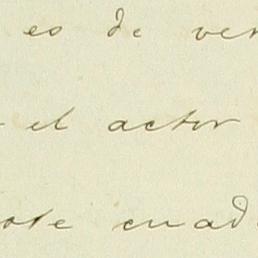 es de ver
el actor
ote cuad